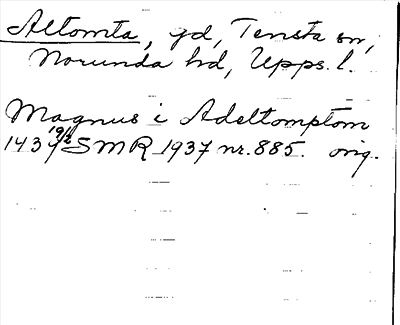 Altomta, gd, Tensta sn,
Norunda hd, Upps. l.
Magnus i Adeltomptom
1439 19/2 SMR 1937 nr. 885. orig.